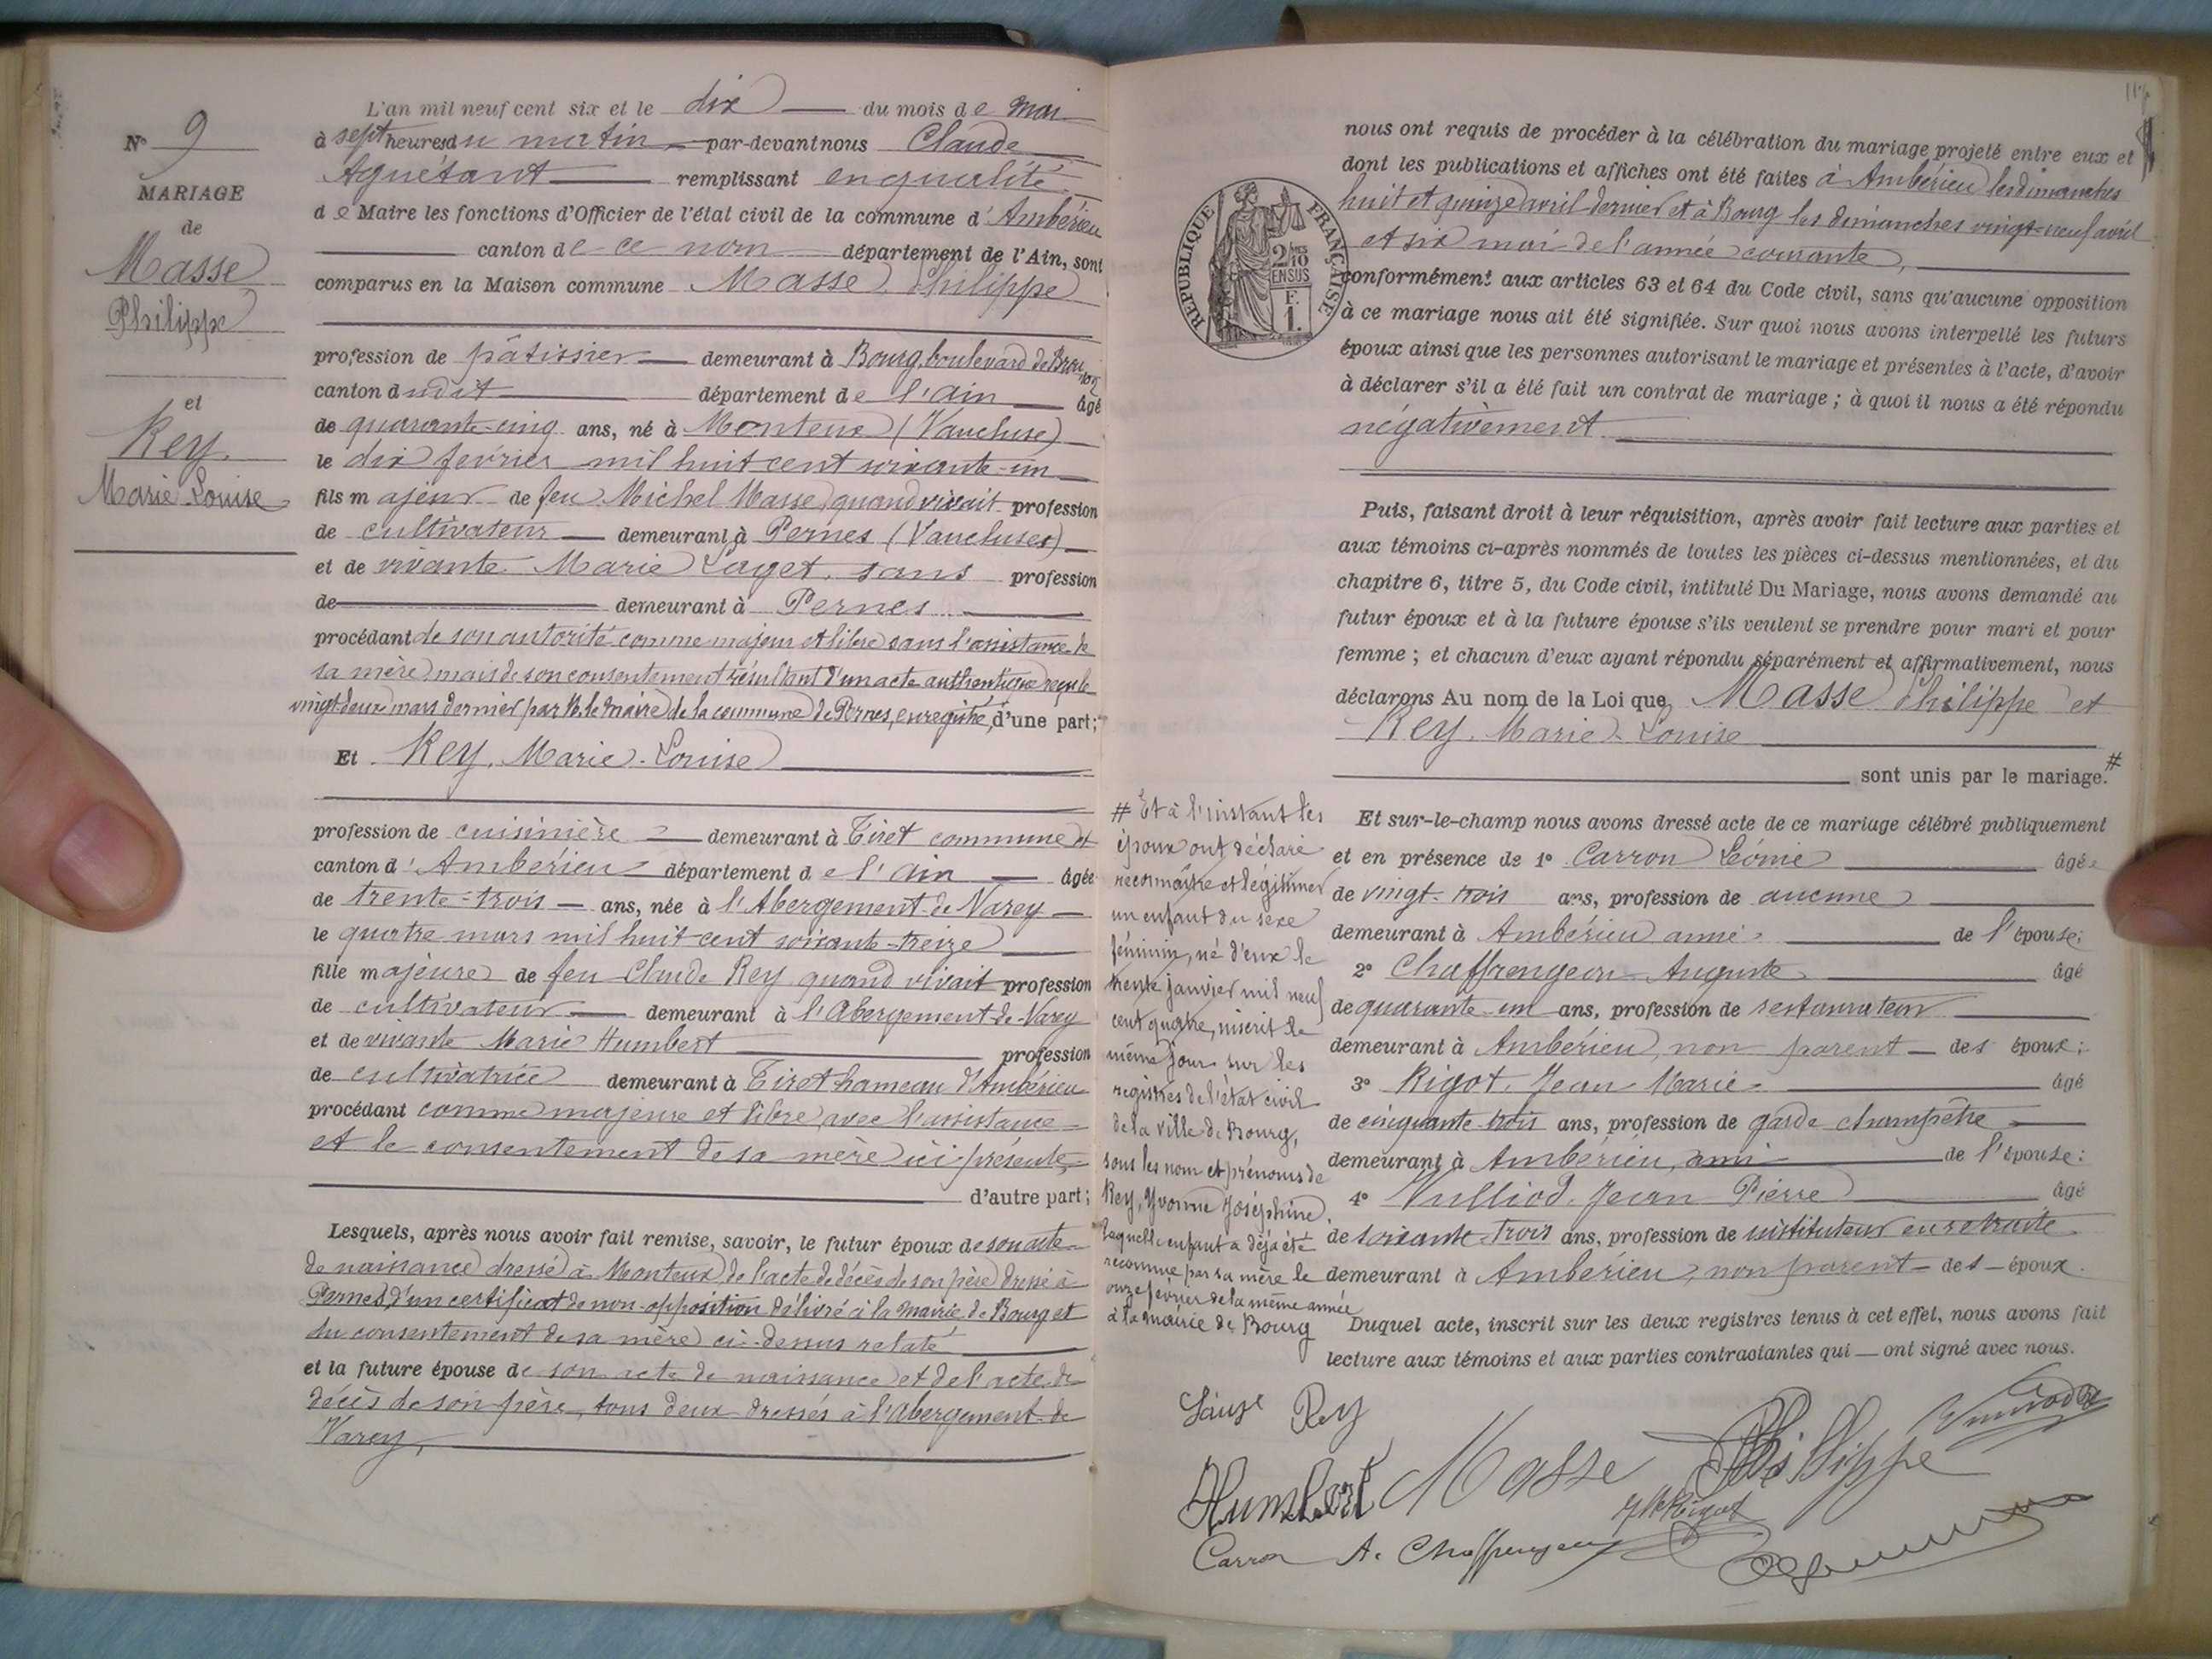 N° 9
MARIAGE
de
Masse
Philippe
et
Rey.
Marie Louise
L'an mil neuf cent six et le dix du mois de mai
à sept heures du matin par-devant nous Claude
Aguétant remplissant en qualité
de Maire les fonctions d'Officier de l'état civil de la commune d'Ambérieu
canton de ce nom département de l'Ain, sont
comparus en la Maison commune Masse Philippe
profession de pâtissier demeurant à Bourg, boulevard de Brou
canton dudit département de l'Ain âgé
de quarante-cinq ans, né à Monteux (Vaucluse)
le dix février mil huit cent soixante-un
fils majeur de feu Michel Masse, quand vivait profession
de cultivateur demeurant à Pernes (Vaucluse)
et de vivante Marie Laget, sans profession
de demeurant à Pernes
procédant de son autorité comme majeur et libre sans l'assistance de
sa mère mais de son consentement résultant d'un acte authentique reçu le
vingt-deux mars dernier par M. le Maire de la commune de Pernes, enregistré, d'une part;
Et Rey. Marie-Louise
profession de cuisinière demeurant à Tiret commune et
canton d'Ambérieu département de l'Ain âgée
de trente-trois ans, née à l'Abergement-de-Varey
le quatre mars mil huit cent soixante-treize
fille majeure de feu Claude Rey quand vivait profession
de cultivateur demeurant à l'Abergement-de-Varey
et de vivante Marie Humbert profession
de cultivatrice demeurant à Tiret hameau d'Ambérieu
procédant comme majeure et libre avec l'assistance
et le consentement de sa mère ici présente,
d'autre part;
Lesquels, après nous avoir fait remise, savoir, le futur époux de son acte
de naissance dressé à Monteux, de l'acte de décès de son père dressé à
Pernes, d'un certificat de non-opposition délivré à la mairie de Bourg et
du consentement de sa mère ci-dessus relaté
et la future épouse de son acte de naissance et de l'acte de
décès de son père, tous deux dressés à l'Abergement-de
Varey,
nous ont requis de procéder à la célébration du mariage projeté entre eux et
dont les publications et affiches ont été faites à Ambérieu les dimanches
huit et quinze avril dernier et à Bourg les dimanches vingt-neuf avril
et six mai de l'année courante,
RÉPUBLIQUE FRANÇAISE
2/10
EN SUS
F.
1.
conformément aux articles 63 et 64 du Code civil, sans qu'aucune opposition
à ce mariage nous ait été signifiée. Sur quoi nous avons interpellé les futurs
époux ainsi que les personnes autorisant le mariage et présentes à l'acte, d'avoir
à déclarer s'il a été fait un contrat de mariage; à quoi il nous a été répondu
négativement
Puis, faisant droit à leur réquisition, après avoir fait lecture aux parties et
aux témoins ci-après nommés de toutes les pièces ci-dessus mentionnées, et du
chapitre 6, titre 5, du Code civil, intitulé Du Mariage, nous avons demandé au
futur époux et à la future épouse s'ils veulent se prendre pour mari et pour
femme; et chacun d'eux ayant répondu séparément et affirmativement, nous
déclarons Au nom de la Loi que Masse Philippe et
Rey. Marie-Louise
sont unis par le mariage. #
# Et à l'instant les
époux ont déclaré
reconnaître et légitimer
un enfant du sexe
féminin, né d'eux le
trente janvier mil neuf
cent quatre, inscrit le
même jour sur les
registres de l'état civil
de la ville de Bourg,
sous les nom et prénoms de
Rey, Yvonne Joséphine,
laquelle enfant a déjà été
reconnue par sa mère le
onze février de la même année
à la mairie de Bourg
Et sur-le-champ nous avons dressé acte de ce mariage célébré publiquement
et en présence de 1° Carron Léonie âgée
de vingt-trois ans, profession de aucune
demeurant à Ambérieu amie de l'épouse;
2° Chaffrengeon Auguste âgé
de quarante-un ans, profession de restaurateur
demeurant à Ambérieu, non parent des époux;
3° Rigot. Jean Marie âgé
de cinquante-trois ans, profession de garde champêtre
demeurant à Ambérieu, ami de l'épouse;
4° Vulliod. Jean Pierre âgé
de soixante-trois ans, profession de instituteur en retraite
demeurant à Ambérieu, non parent des époux.
Duquel acte, inscrit sur les deux registres tenus à cet effet, nous avons fait
lecture aux témoins et aux parties contractantes qui ont signé avec nous.
Rey
Humbert Masse Philippe
Rigot
Carron A. Chaffrengeon